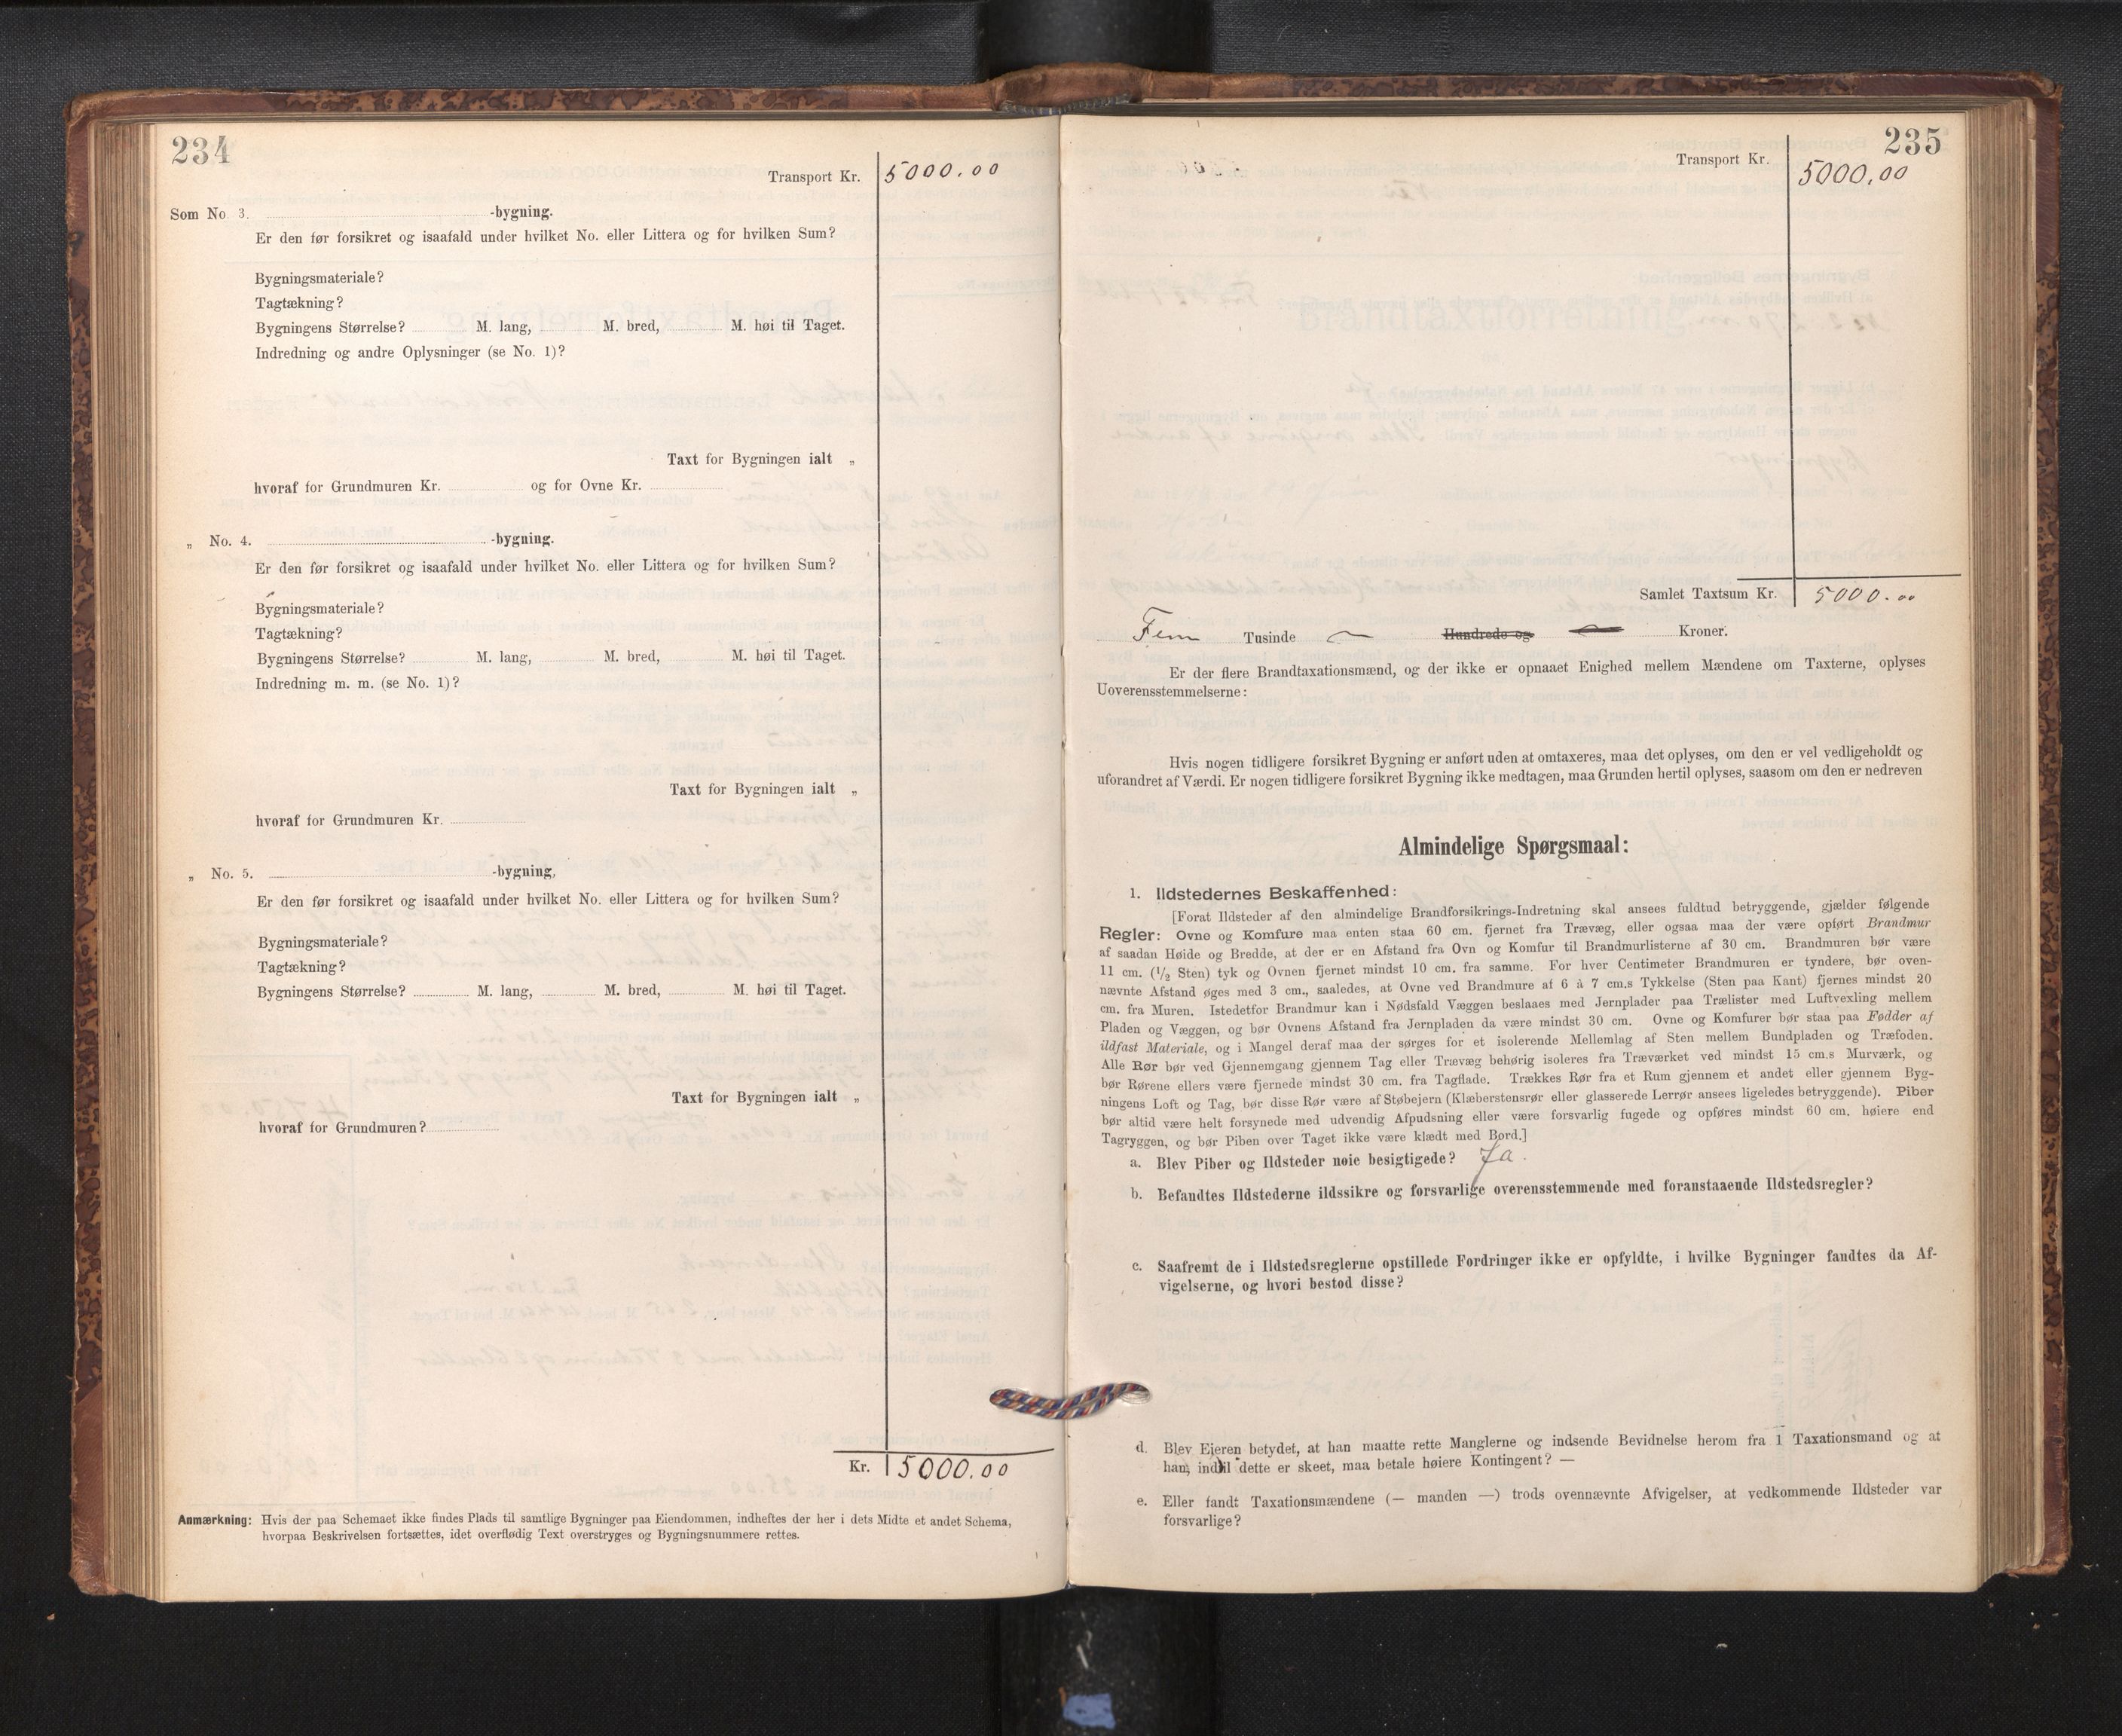 234
Transport Kr. 5000.00
Som No. 3. -bygning.
Er den før forsikret og isaafald under hvilket No. eller Littera og for hvilken Sum?
Bygningsmateriale?
Tagtækning?
Bygningens Størrelse? M. lang, M. bred, M. høi til Taget.
Indredning og andre Oplysninger (se No. 1)?
Taxt for Bygningen ialt „
hvoraf for Grundmuren Kr. og for Ovne Kr.
„ No. 4. -bygning.
Er den før forsikret og isaafald under hvilket No. eller Littera og for hvilken Sum?
Bygningsmateriale?
Tagtækning?
Bygningens Størrelse? M. lang, M. bred, M. høi til Taget.
Indredning m. m. (se No. 1)?
Taxt for Bygningen ialt „
hvoraf for Grundmuren Kr.
„ No. 5. -bygning,
Er den før forsikret og isaafald under hvilket No. eller Littera og for hvilken Sum?
Bygningsmateriale?
Tagtækning?
Bygningens Størrelse? M. lang, M. bred, M. høi til Taget.
Taxt for Bygningen ialt „
hvoraf for Grundmuren?
Kr. 5000.00
Anmærkning: Hvis der paa Schemaet ikke findes Plads til samtlige Bygninger paa Eiendommen, indheftes der her i dets Midte et andet Schema,
hvorpaa Beskrivelsen fortsættes, idet overflødig Text overstryges og Bygningsnummere rettes.
235
Transport Kr. 5000.00
Samlet Taxtsum Kr. 5000.00
Fem Tusinde Hundrede og Kroner.
Er der flere Brandtaxationsmænd, og der ikke er opnaaet Enighed mellem Mændene om Taxterne, oplyses
Uoverensstemmelserne:
Hvis nogen tidligere forsikret Bygning er anført uden at omtaxeres, maa det oplyses, om den er vel vedligeholdt og
uforandret af Værdi. Er nogen tidligere forsikret Bygning ikke medtagen, maa Grunden hertil oplyses, saasom om den er nedreven
Almindelige Spørgsmaal:
1. Ildstedernes Beskaffenhed:
[Forat Ildsteder af den almindelige Brandforsikrings-Indretning skal ansees fuldtud betryggende, gjælder følgende
Regler: Ovne og Komfure maa enten staa 60 cm. fjernet fra Trævæg, eller ogsaa maa der være opført Brandmur
af saadan Høide og Bredde, at der er en Afstand fra Ovn og Komfur til Brandmurlisterne af 30 cm. Brandmuren bør være
11 cm. (1/2 Sten) tyk og Ovnen fjernet mindst 10 cm. fra samme. For hver Centimeter Brandmuren er tyndere, bør oven-
nævnte Afstand øges med 3 cm., saaledes, at Ovne ved Brandmure af 6 à 7 cm.s Tykkelse (Sten paa Kant) fjernes mindst 20
cm. fra Muren. Istedetfor Brandmur kan i Nødsfald Væggen beslaaes med Jernplader paa Trælister med Luftvexling mellem
Pladen og Væggen, og bør Ovnens Afstand fra Jernpladen da være mindst 30 cm. Ovne og Komfurer bør staa paa Fødder af
ildfast Materiale, og i Mangel deraf maa der sørges for et isolerende Mellemlag af Sten mellem Bundpladen og Træfoden.
Alle Rør bør ved Gjennemgang gjennem Tag eller Trævæg behørig isoleres fra Træværket ved mindst 15 cm.s Murværk, og
bør Rørene ellers være fjernede mindst 30 cm. fra Tagflade. Trækkes Rør fra et Rum gjennem et andet eller gjennem Byg-
ningens Loft og Tag, bør disse Rør være af Støbejern (Klæberstensrør eller glasserede Lerrør ansees ligeledes betryggende). Piber
bør altid være helt forsynede med udvendig Afpudsning eller være forsvarlig fugede og opføres mindst 60 cm. høiere end
Tagryggen, og bør Piben over Taget ikke være klædt med Bord.]
a. Blev Piber og Ildsteder nøie besigtigede? Ja.
b. Befandtes Ildstederne ildssikre og forsvarlige overensstemmende med foranstaaende Ildstedsregler?
c. Saafremt de i Ildstedsreglerne opstillede Fordringer ikke er opfyldte, i hvilke Bygninger fandtes da Af-
vigelserne, og hvori bestod disse?
d. Blev Eieren betydet, at han maatte rette Manglerne og indsende Bevidnelse herom fra 1 Taxationsmand og at
han, indtil dette er skeet, maa betale høiere Kontingent? —
e. Eller fandt Taxationsmændene (— manden —) trods ovennævnte Afvigelser, at vedkommende Ildsteder var
forsvarlige?